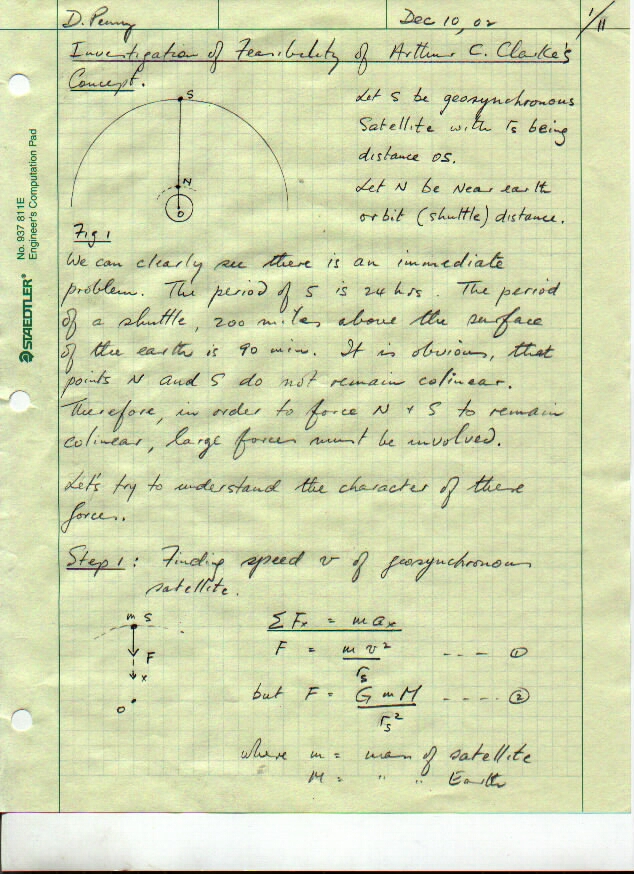 D. Penny Dec 10, 02 1/11
Investigation of Feasibility of Arthur C. Clarke's
Concept.
S
N
O
Fig 1
Let S be geosynchronous
Satellite with rs being
distance OS.
Let N be Near earth
orbit (shuttle) distance.
We can clearly see there is an immediate
problem. The period of S is 24 hrs. The period
of a shuttle, 200 miles above the surface
of the earth is 90 min. It is obvious, that
points N and S do not remain colinear.
Therefore, in order to force N + S to remain
colinear, large forces must be involved.
Let's try to understand the character of these
forces.
Step 1: Finding speed v of geosynchronous
satellite.
m S
F
x
O
Σ Fx = m ax
F = m v² / rs ---- ①
but F = G m M / rs² ----- ②
where m = mass of satellite
M = " " Earth
STAEDTLER® No. 937 811E
Engineer's Computation Pad